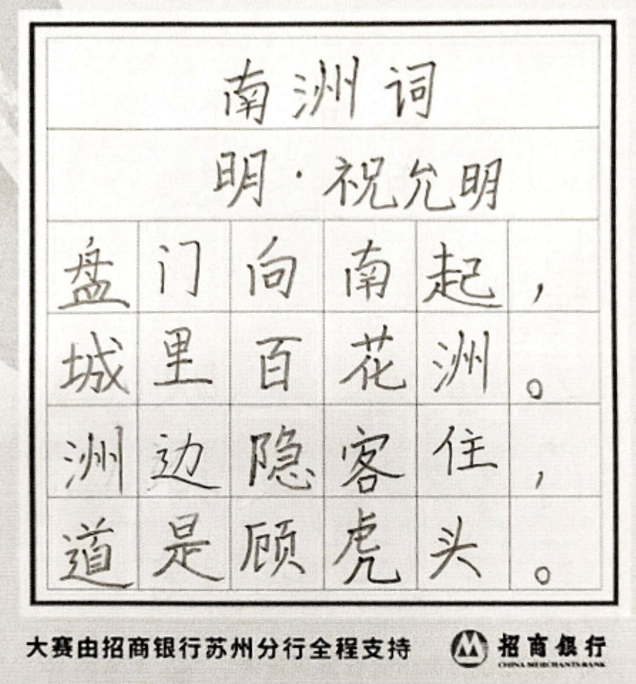 南洲词
明·祝允明
盘门向南起，
城里百花洲。
洲边隐客住，
道是顾虎头。
大赛由招商银行苏州分行全程支持
招商银行
CHINA MERCHANTS BANK